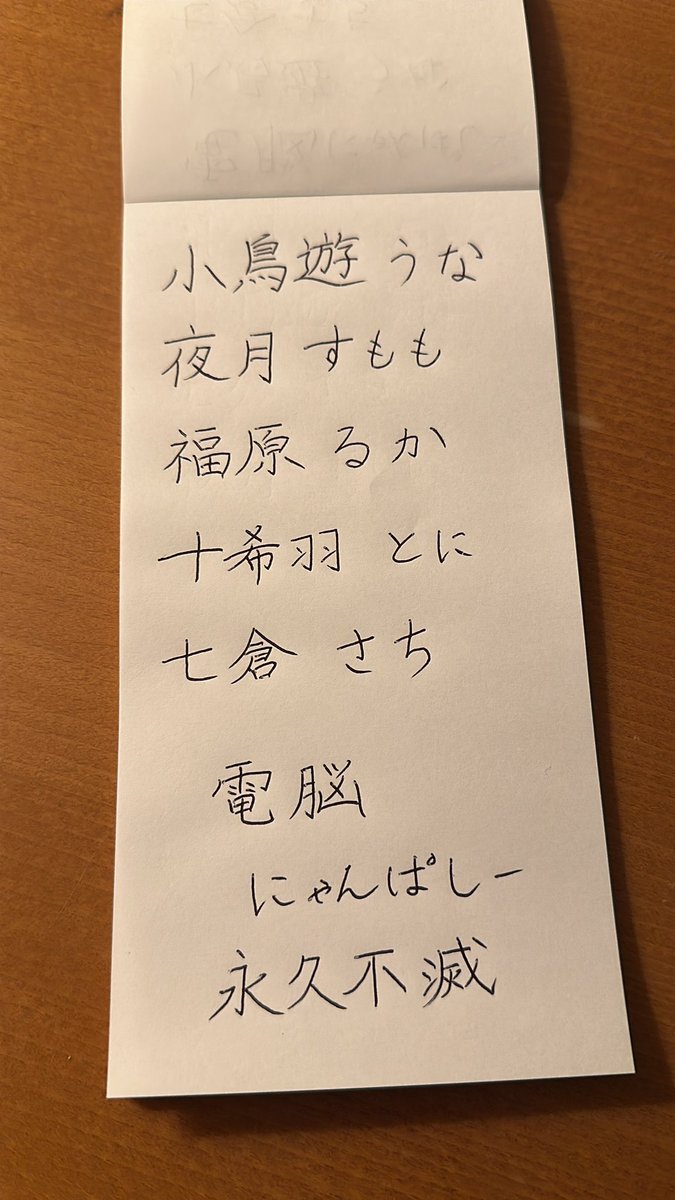 小鳥遊 うな
夜月 すもも
福原 るか
十希羽 とに
七倉 さち
電脳
にゃんぱしー
永久不滅